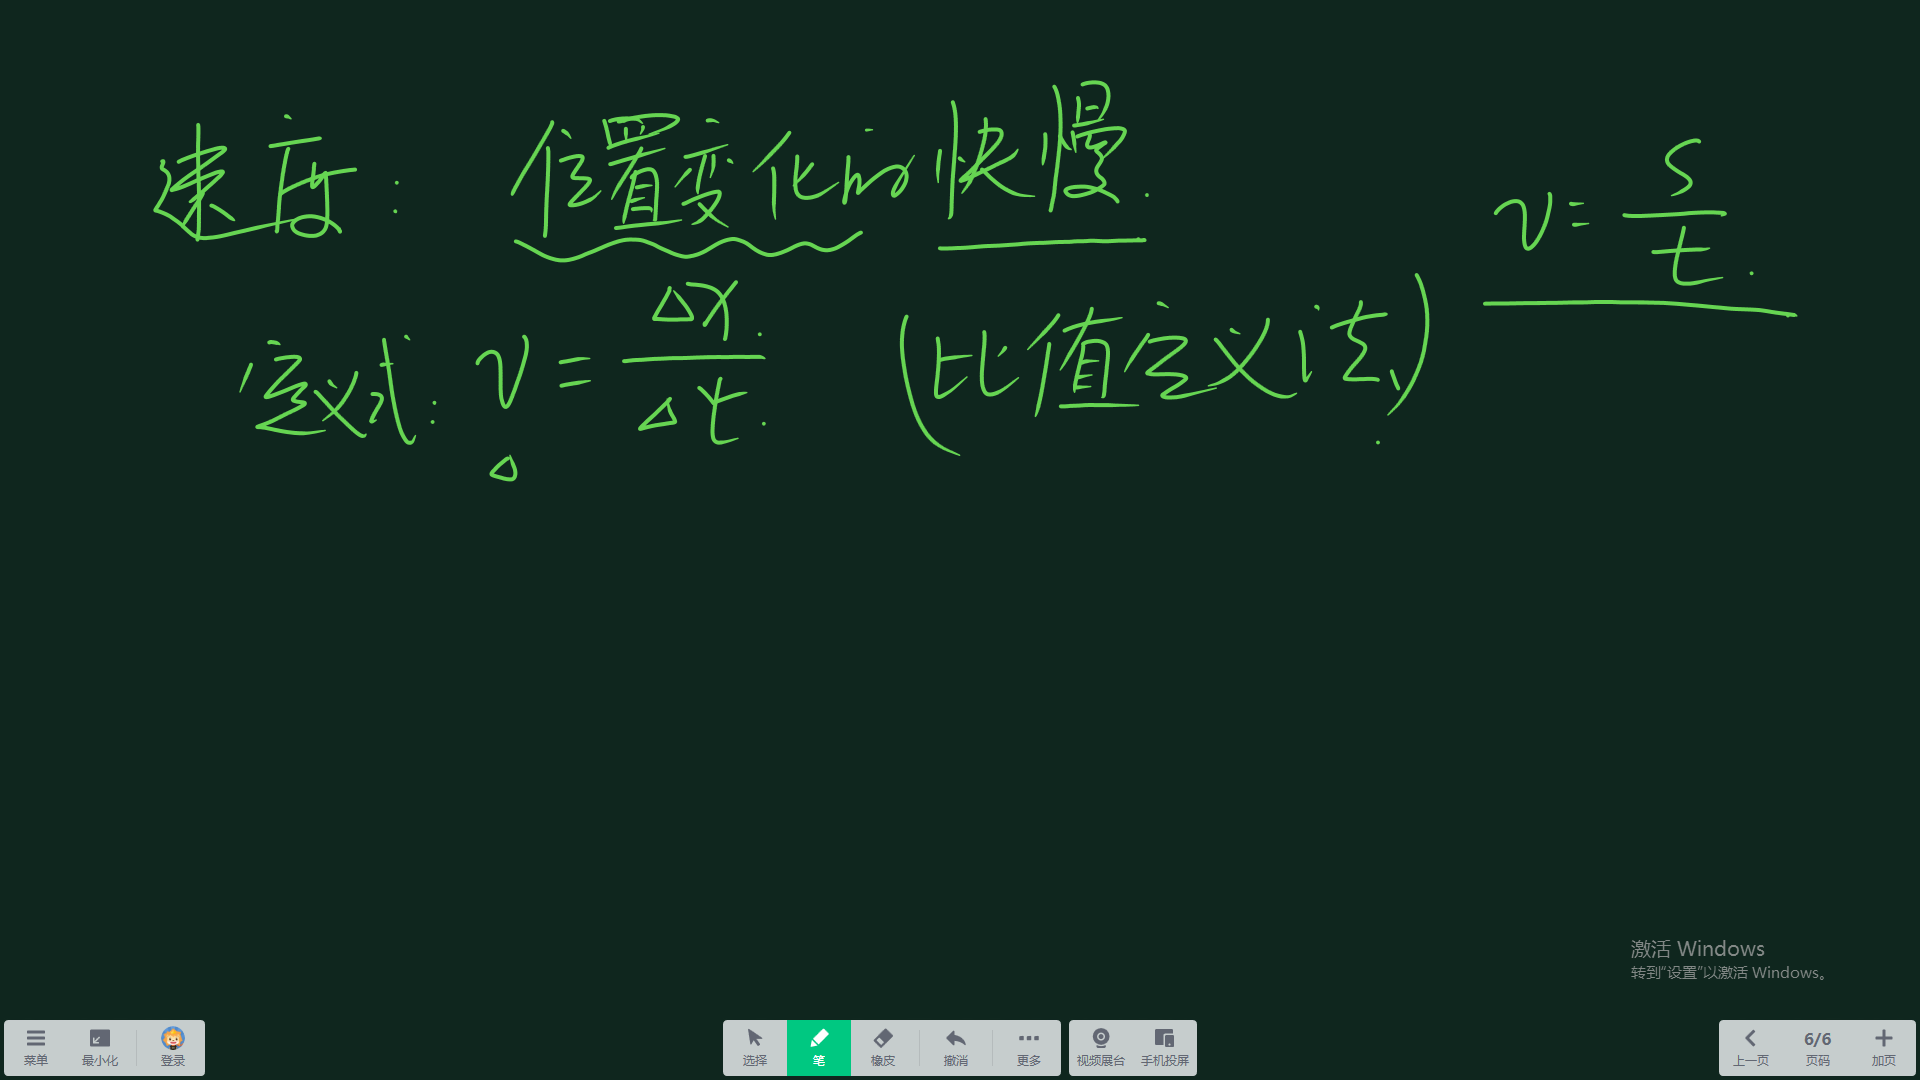 速度： 位置变化的快慢. v = s/t.
定义式： v = Δx/Δt. (比值定义法)
Δ
激活 Windows
转到“设置”以激活 Windows。
菜单 最小化 登录 选择 笔 橡皮 撤消 更多 视频展台 手机投屏 上一页 6/6 页码 加页